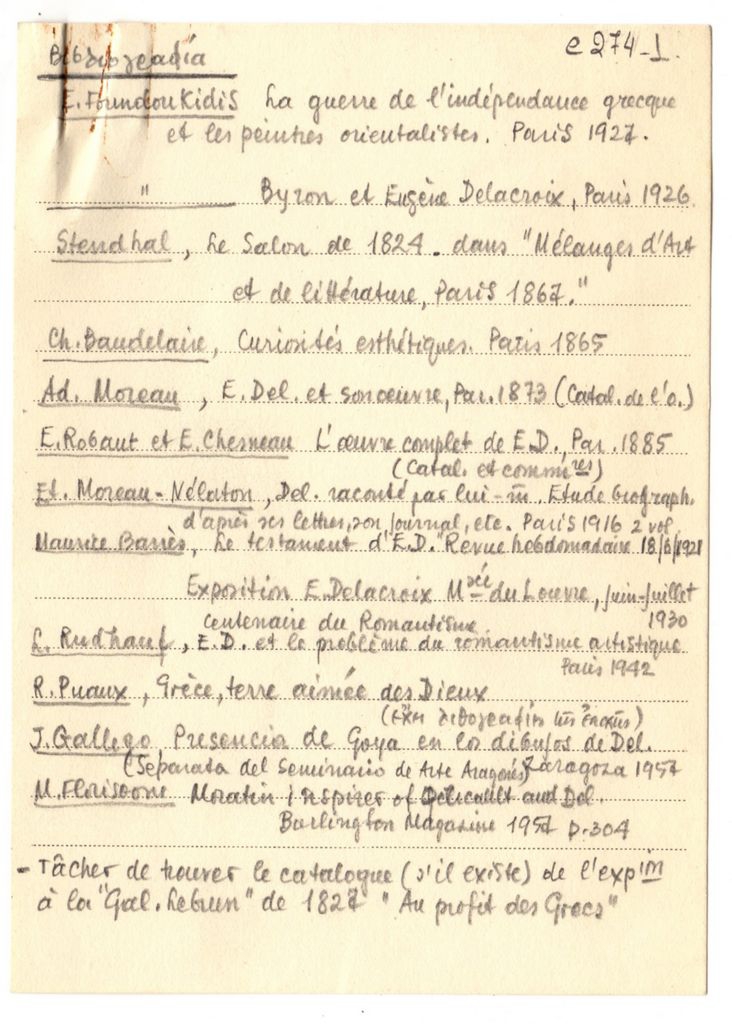 Βιβλιογραφία
e 274-1.
E. Foundoukidis La guerre de l'indépendance grecque
et les peintres orientalistes. Paris 1927.
" Byron et Eugène Delacroix, Paris 1926.
Stendhal, Le Salon de 1824. dans "Mélanges d'Art
et de littérature, Paris 1867."
Ch. Baudelaire, Curiosités esthétiques. Paris 1865
Ad. Moreau, E. Del. et son oeuvre, Par. 1873 (Catal. de l'o.)
E. Robaut et E. Chesneau L'œuvre complet de E.D., Par. 1885
(Catal. et comm^res)
Et. Moreau-Nélaton, Del. raconté par lui-m̄. Etude biograph.
d'après ses lettres, son journal, etc. Paris 1916 2 vol.
Maurice Barrès, Le testament d'E.D. "Revue hebdomadaire 18/6/1921
Exposition E. Delacroix M^sée du Louvre, juin-juillet
Centenaire du Romantisme 1930
L. Rudhauf, E.D. et le problème du romantisme artistique
Paris 1942
R. Puaux, Grèce, terre aimée des Dieux
J. Gallego Presencia de Goya en los dibujos de Del.
(Separata del Seminario de Arte Aragonés) Zaragoza 1957
M. Florisoone Moratin inspirer of Géricault and Del.
Burlington Magazine 1957 p. 304
- Tâcher de trouver le catalogue (s'il existe) de l'exp^on
à la "Gal. Lebrun" de 1827 "Au profit des Grecs"